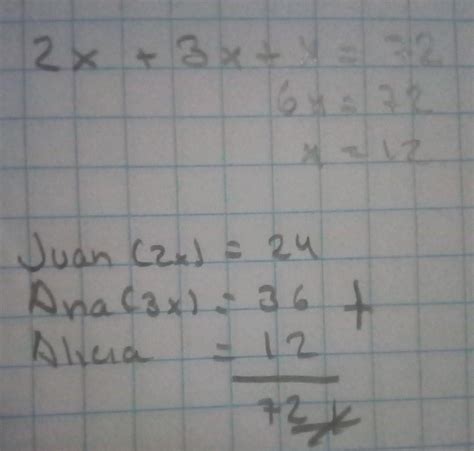 2x + 3x + x = 72
6x = 72
x = 12
Juan (2x) = 24
Ana (3x) = 36 +
Alicia = 12
72